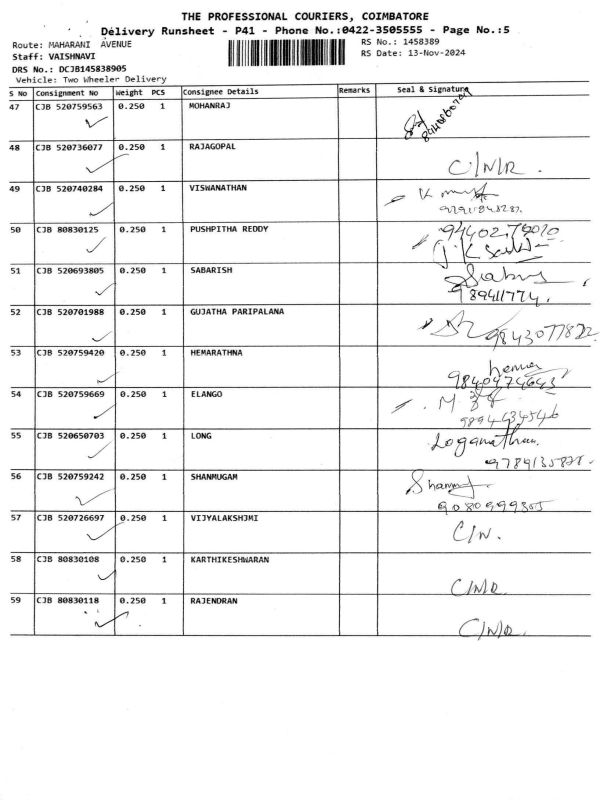 THE PROFESSIONAL COURIERS, COIMBATORE
Delivery Runsheet - P41 - Phone No.:0422-3505555 - Page No.:5
Route: MAHARANI AVENUE
RS No.: 1458389
Staff: VAISHNAVI
RS Date: 13-Nov-2024
DRS No.: DCJB145838905
Vehicle: Two Wheeler Delivery
S No Consignment No Weight PCS Consignee Details Remarks Seal & Signature
47 CJB 520759563 0.250 1 MOHANRAJ
48 CJB 520736077 0.250 1 RAJAGOPAL C/N/R.
49 CJB 520740284 0.250 1 VISWANATHAN
50 CJB 80830125 0.250 1 PUSHPITHA REDDY
51 CJB 520693805 0.250 1 SABARISH
52 CJB 520701988 0.250 1 GUJATHA PARIPALANA
9843077822
53 CJB 520759420 0.250 1 HEMARATHNA hema
9840474643
54 CJB 520759669 0.250 1 ELANGO
9894434546
55 CJB 520650703 0.250 1 LONG Loganathan.
56 CJB 520759242 0.250 1 SHANMUGAM
9080999305
57 CJB 520726697 0.250 1 VIJYALAKSHJMI C/N.
58 CJB 80830108 0.250 1 KARTHIKESHWARAN C/N/R.
59 CJB 80830118 0.250 1 RAJENDRAN C/N/R.